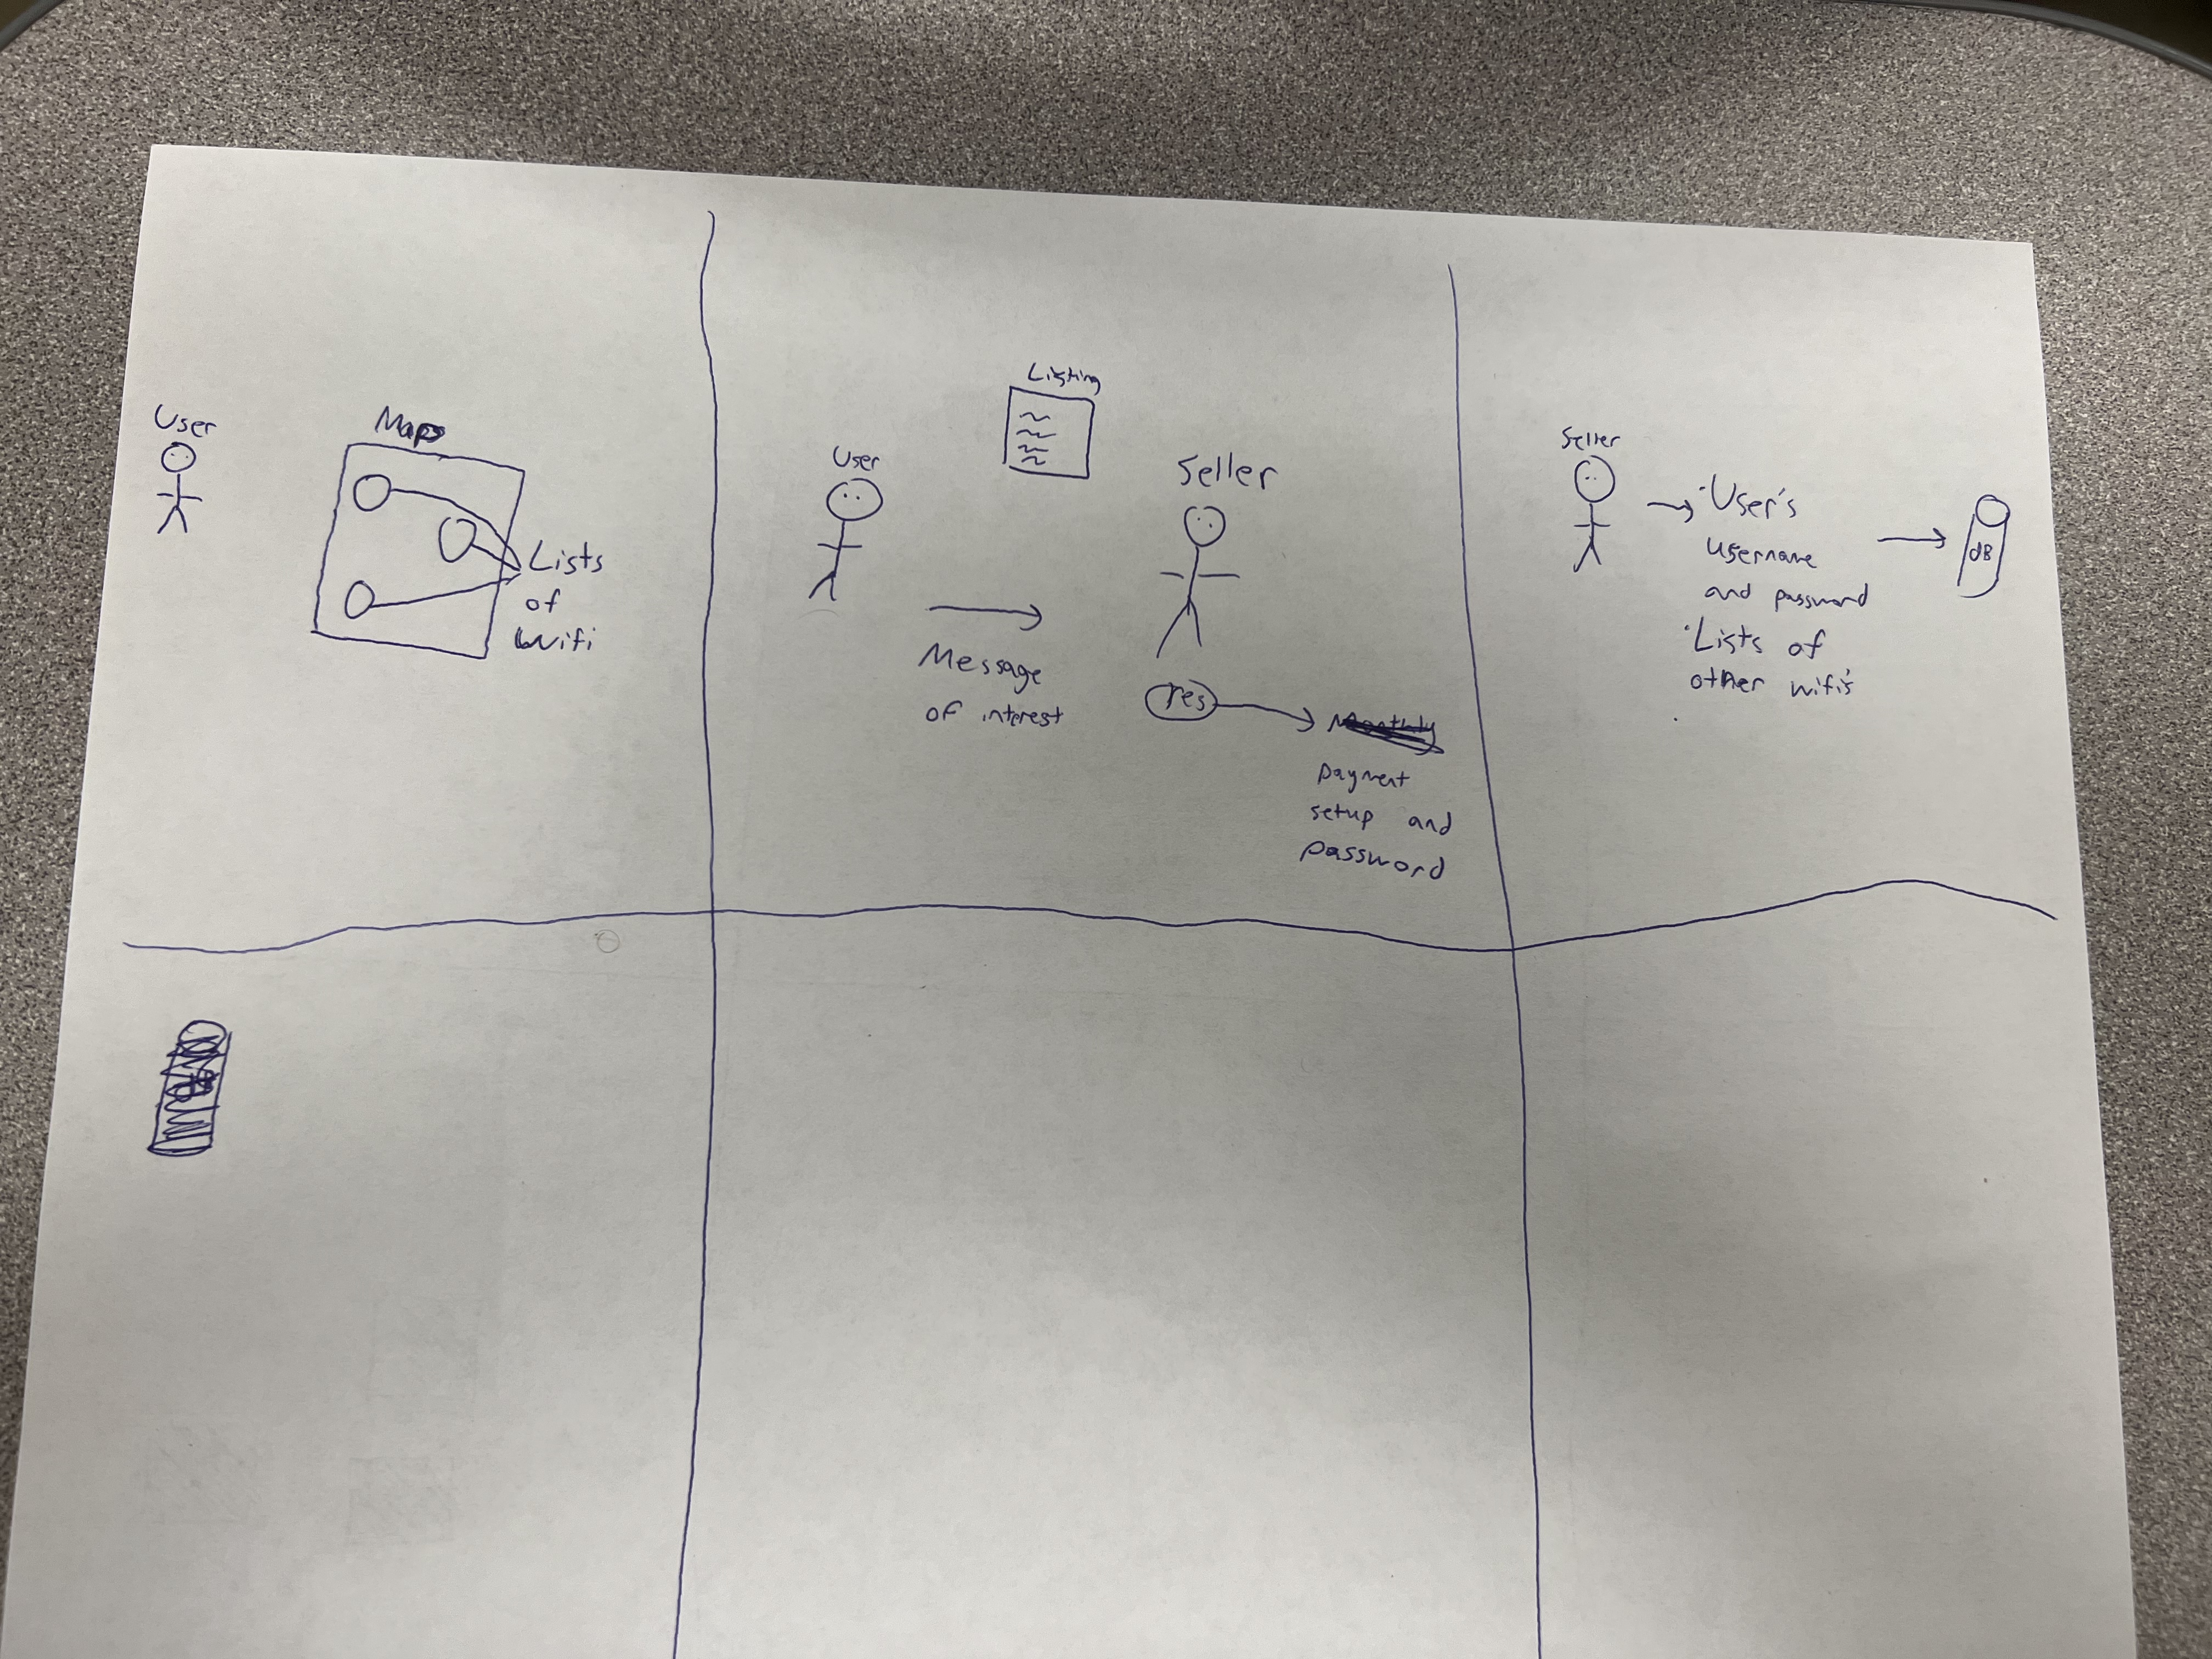 User
Map
Lists
of
wifi
User
Listing
Seller
Message
of interest
Yes
payment
setup and
password
Seller
·User's
username
and password
·Lists of
other wifi's
dB